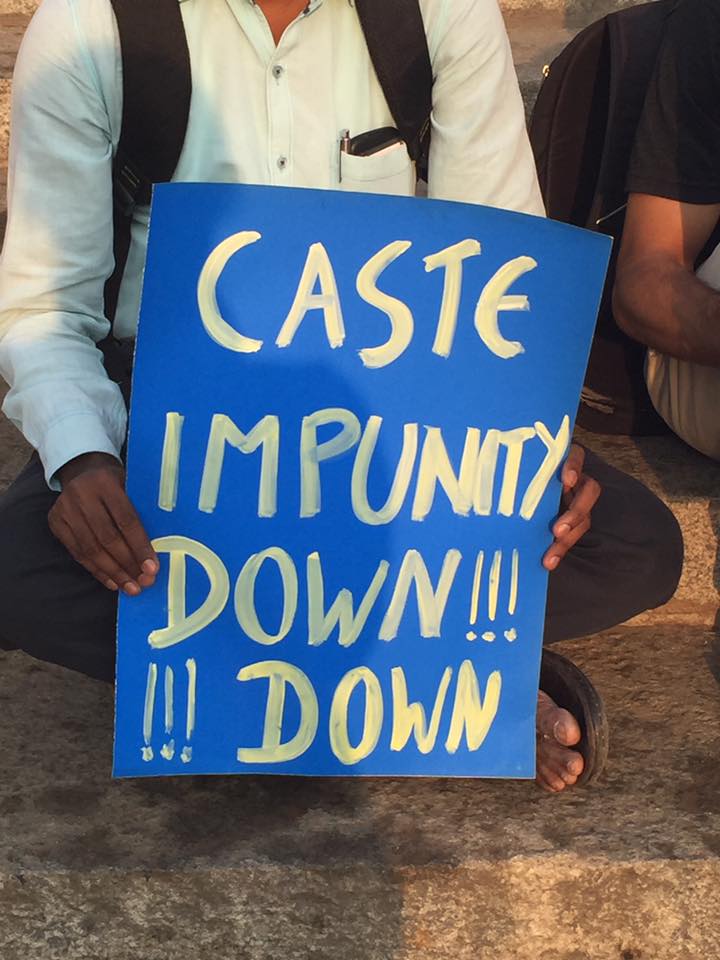 CASTE
IMPUNITY
DOWN!!!
!!! DOWN